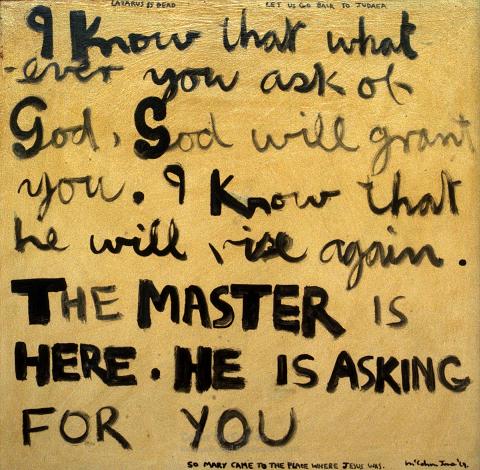 LAZARUS IS DEAD LET US GO BACK TO JUDAEA
I Know that what
-ever you ask of
God, God will grant
you. I Know that
he will rise again.
THE MASTER IS
HERE. HE IS ASKING
FOR YOU
SO MARY CAME TO THE PLACE WHERE JESUS WAS. McCahon June '69.